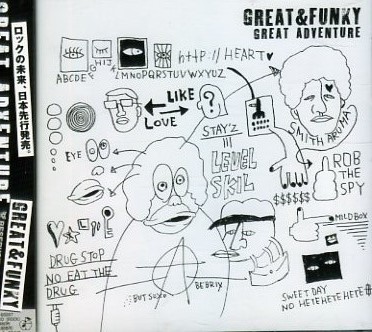 GREAT&FUNKY
GREAT ADVENTURE
GREAT ADVENTURE
ロックの未来、日本先行発売。
GREAT&FUNKY
http://HEART♥
GHIJ
ABCDEF
LMNOPQRSTUVWXYUZ
LIKE
LOVE
?
STAY'Z
SMITH
EYE
LEVEL
SKIL
ROB
THE
SPY
$$$$$$
MILDBOX
DRUG STOP
NO EAT THE
DRUG
BUT SUX
BEBRIX
SWEET DAY
NO HETEHETEHETE